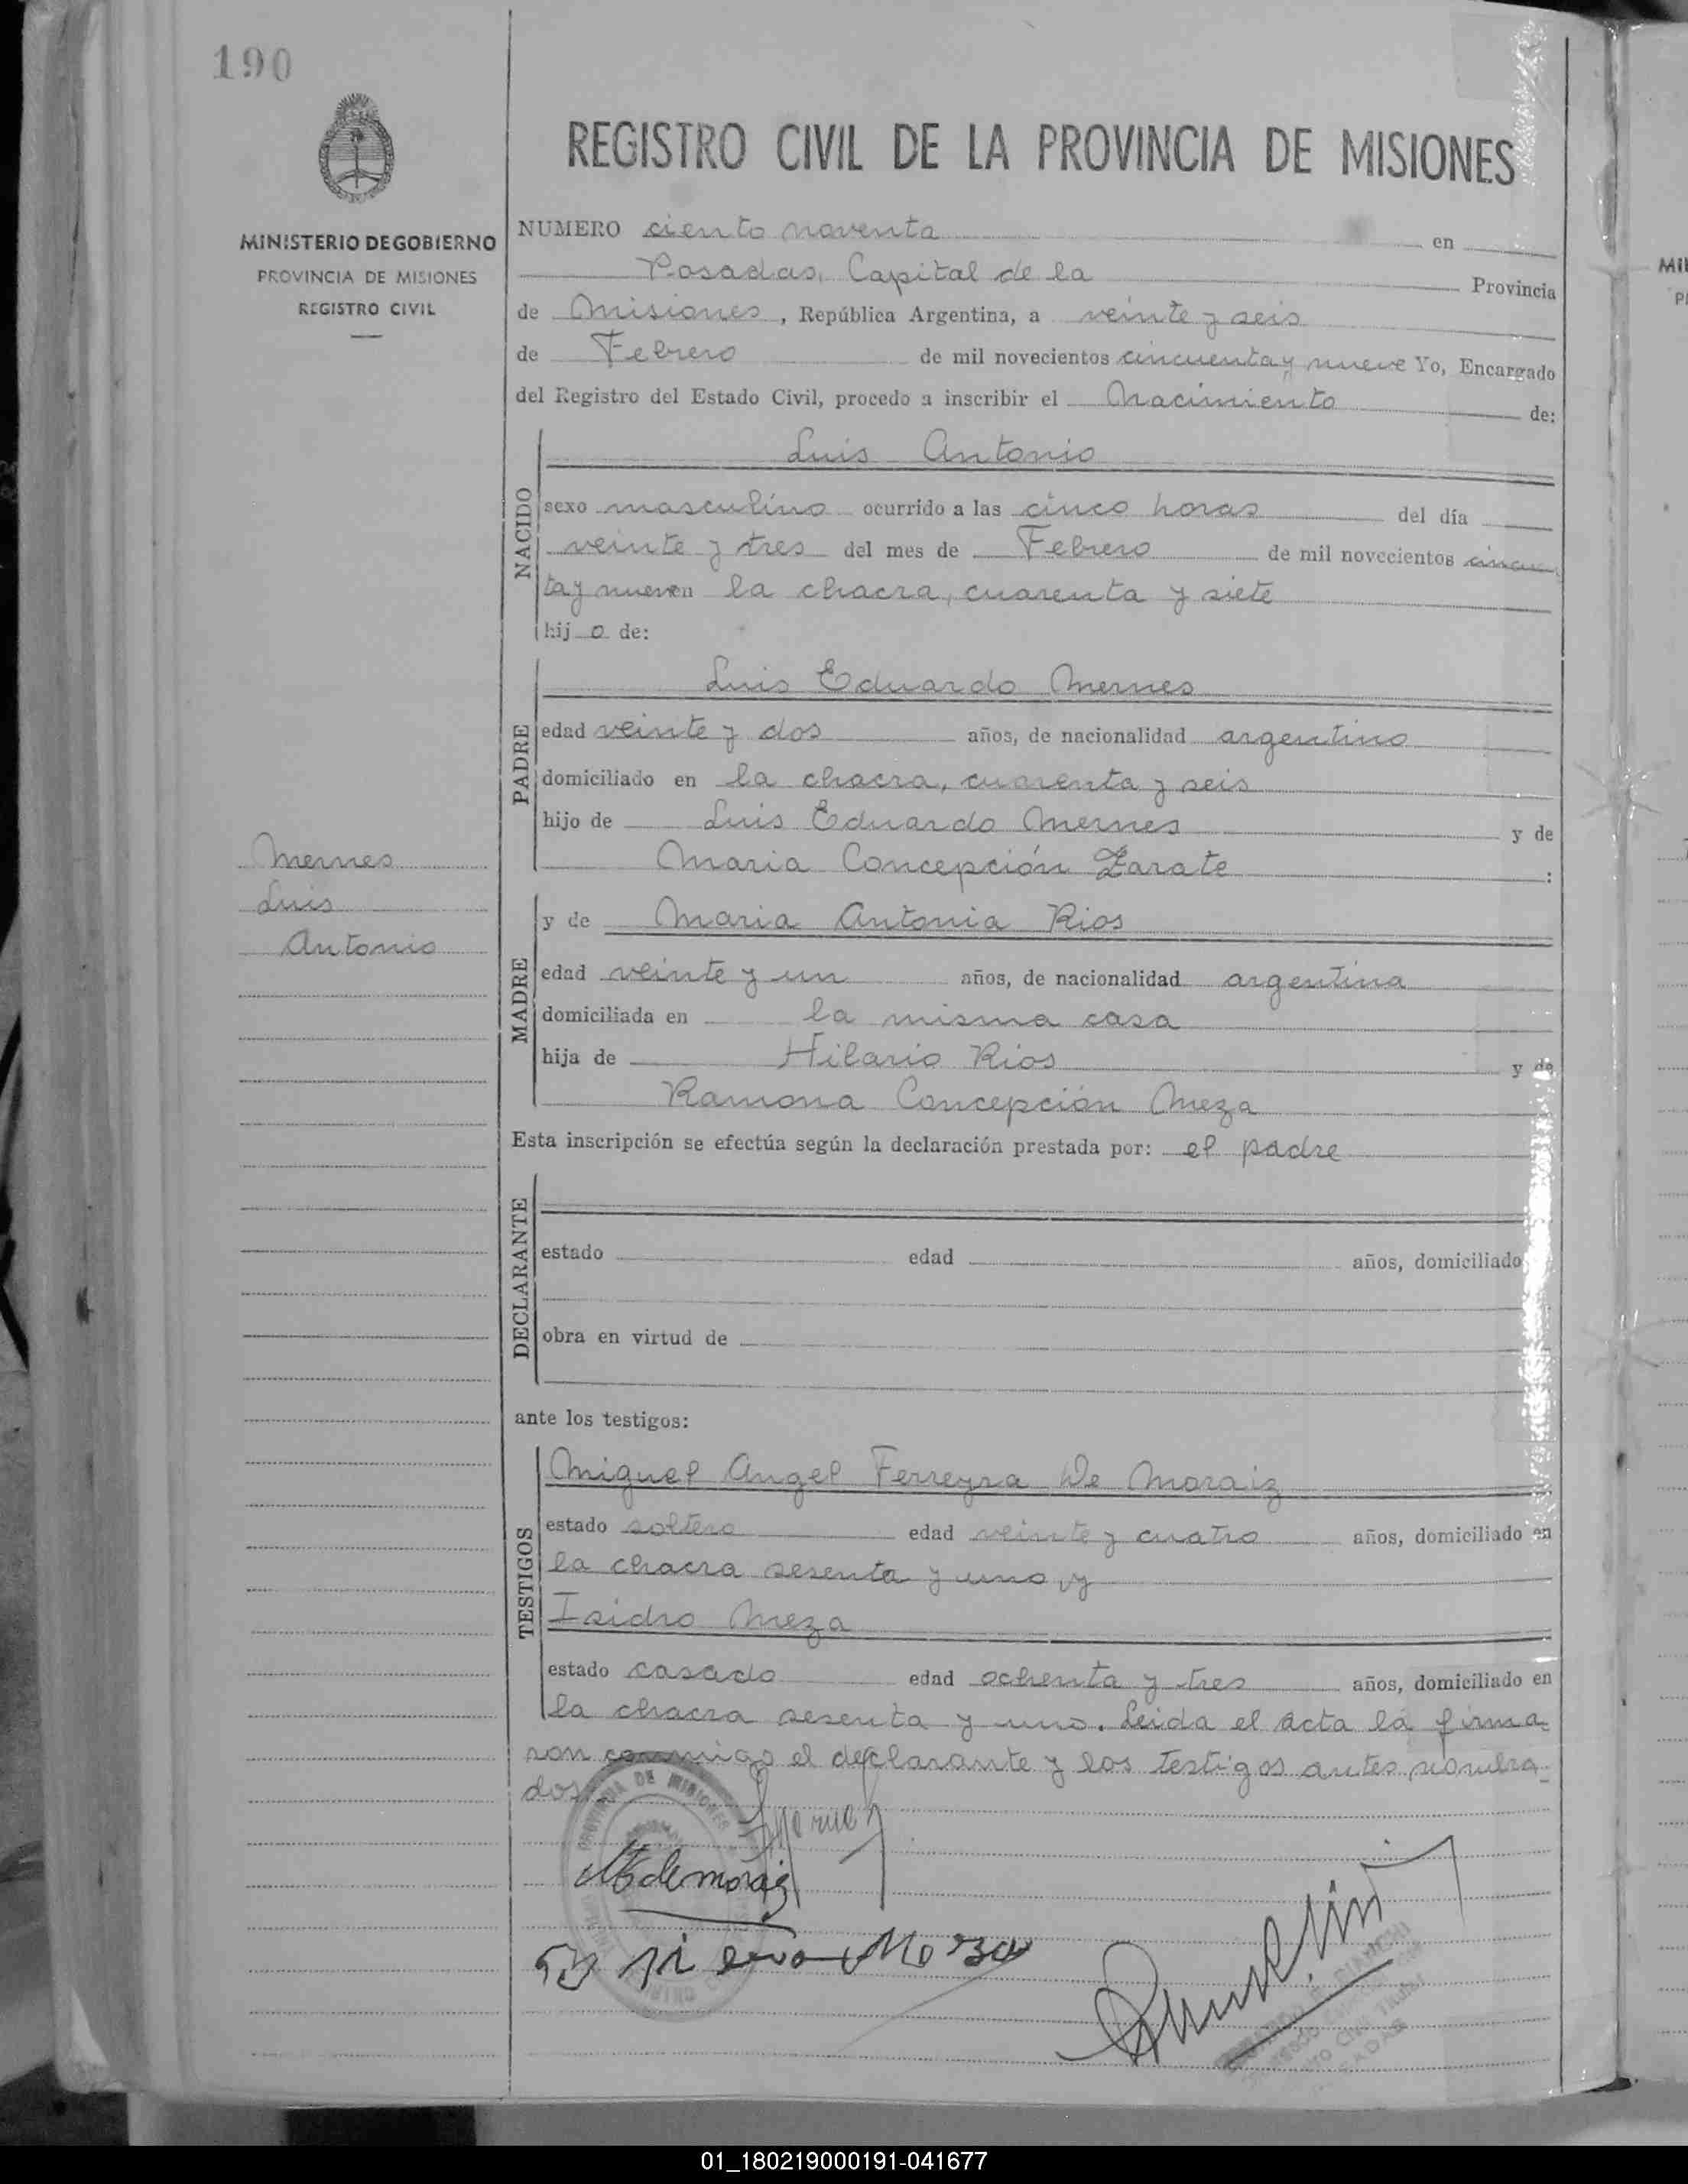 190
REGISTRO CIVIL DE LA PROVINCIA DE MISIONES
MINISTERIO DE GOBIERNO
PROVINCIA DE MISIONES
REGISTRO CIVIL
NUMERO ciento noventa en
Posadas, Capital de la Provincia
de Misiones, República Argentina, a veinte y seis
de Febrero de mil novecientos cincuenta y nueve Yo, Encargado
del Registro del Estado Civil, procedo a inscribir el Nacimiento de:
Luis Antonio
NACIDO
sexo masculino ocurrido a las cinco horas del día
veinte y tres del mes de Febrero de mil novecientos cincuen
ta y nueve en la chacra, cuarenta y siete
hijo de:
Luis Eduardo Mernes
PADRE
edad veinte y dos años, de nacionalidad argentino
domiciliado en la chacra, cuarenta y seis
hijo de Luis Eduardo Mernes y de
Maria Concepción Zarate :
Mernes
Luis
Antonio
y de Maria Antonia Rios
MADRE
edad veinte y un años, de nacionalidad argentina
domiciliada en la misma casa
hija de Hilario Rios y de
Ramona Concepción Meza
Esta inscripción se efectúa según la declaración prestada por: el padre
DECLARANTE
estado edad años, domiciliado
obra en virtud de
ante los testigos:
TESTIGOS
Miguel Angel Ferreyra De Moraiz
estado soltero edad veinte y cuatro años, domiciliado en
la chacra sesenta y uno, y
Isidro Meza
estado casado edad ochenta y tres años, domiciliado en
la chacra sesenta y uno. Leida el acta la firma
ron conmigo el declarante y los testigos antes nombra-
dos
PROVINCIA DE MISIONES
01_180219000191-041677